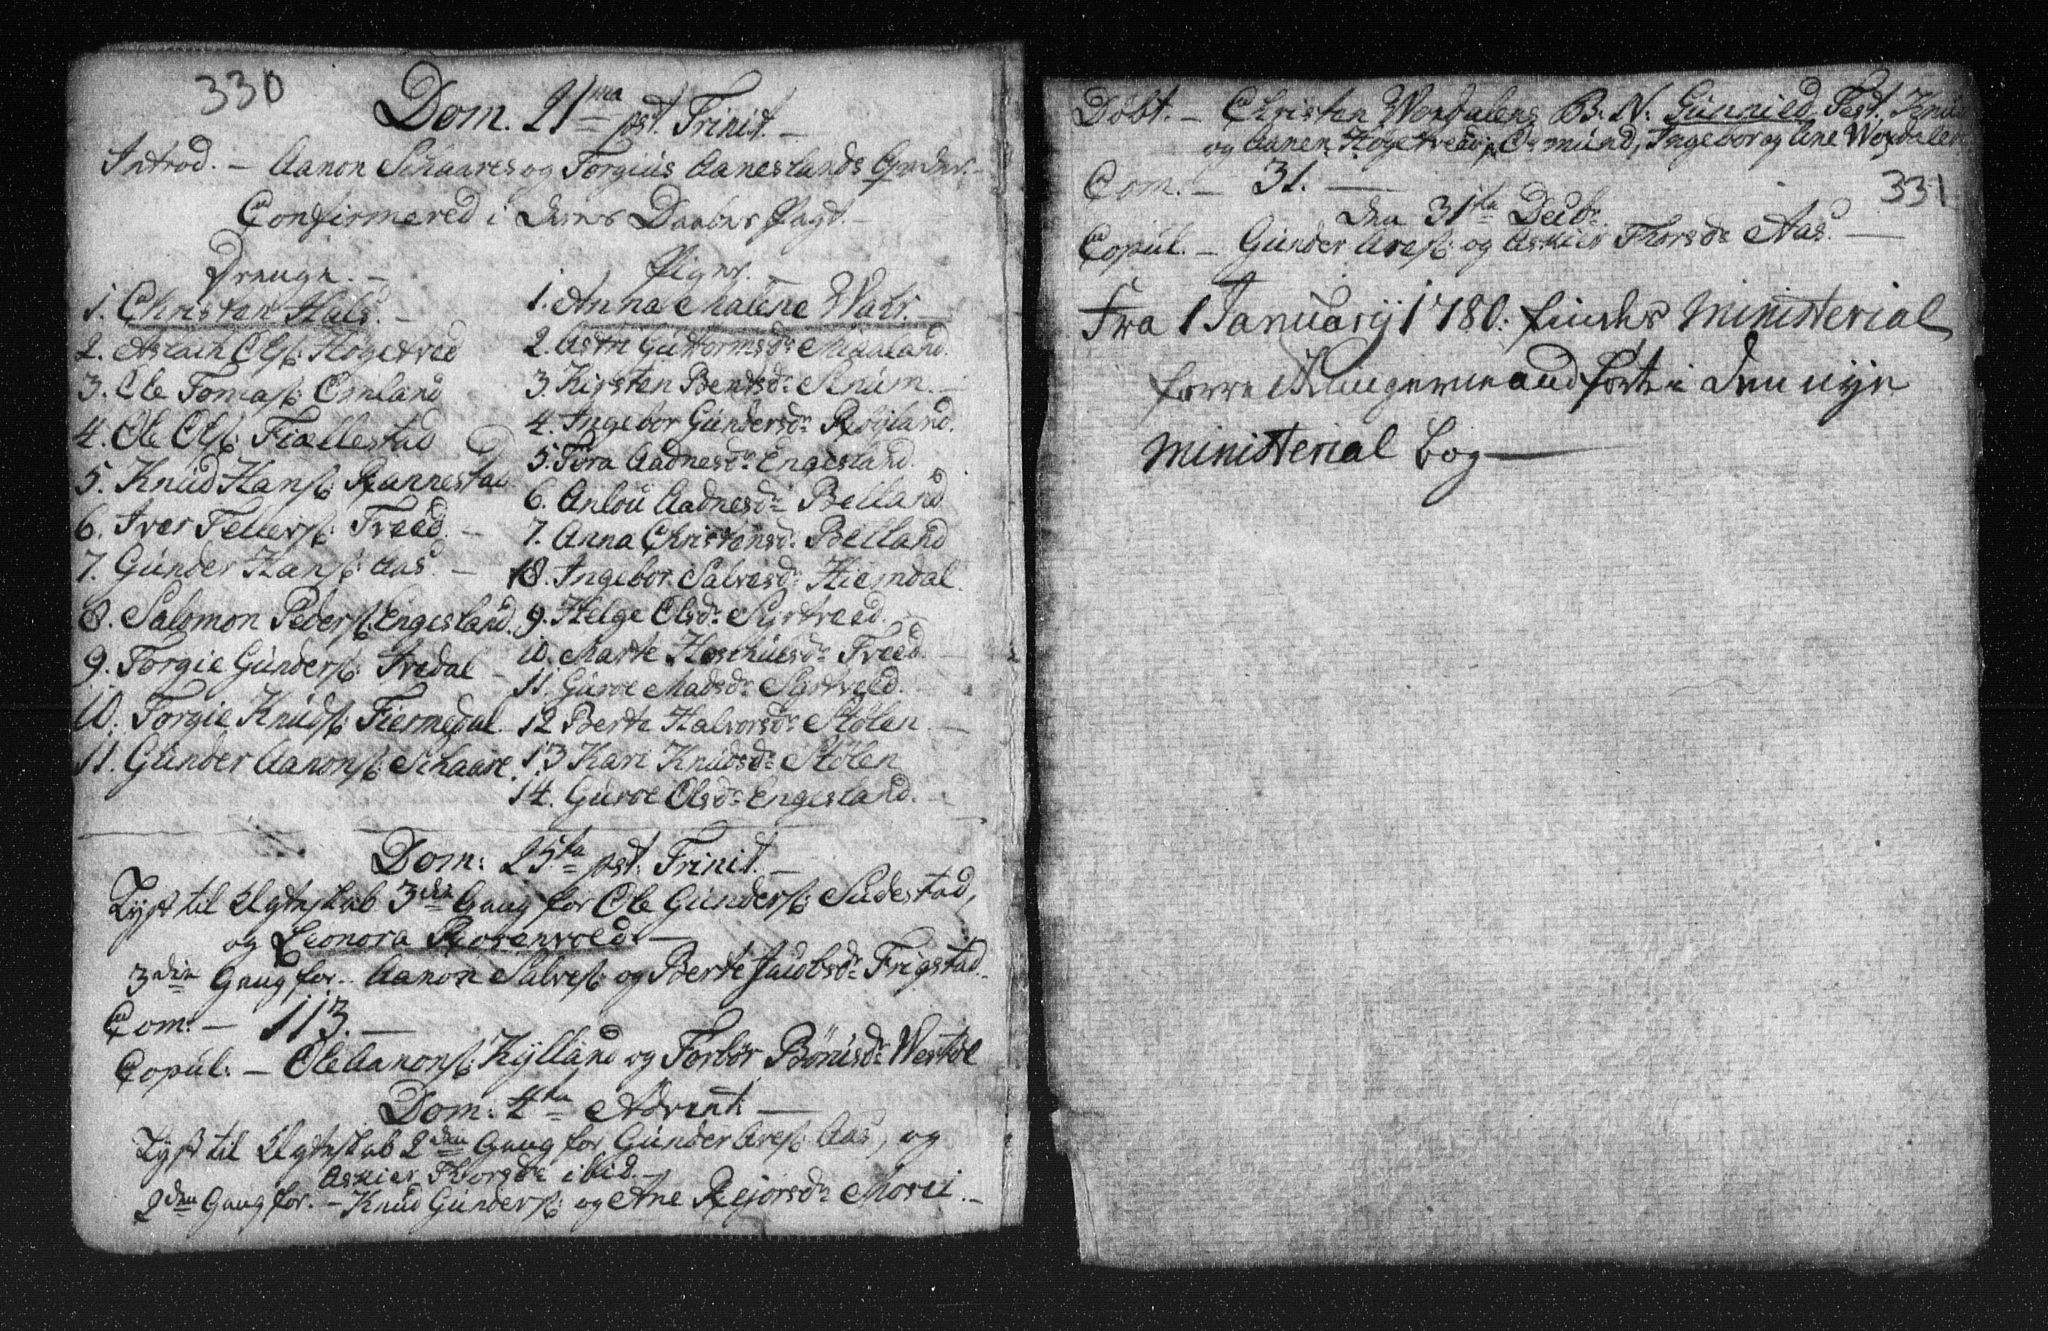 330
Dom. 21ma pst. Trinit. —
Introd. — Aanon Schaares og Torgius Aaneslands
Confirmered i deres Daabes Pagt. —
Drenge. —
1. Christen Hals. —
2. Aslach Ols: Høgetved
3. Ole Tomas: Omland
4. Ole Ols: Fiællestad
5. Knud Hans: Rannestad
6. Iver Tellefs: Treed. —
7. Gunder Hans: Aas. —
8. Salomon Peders: Engesland.
9. Torgie Gunders: Tvedal —
10. Torgie Knuds: Fiermedal.
11. Gunder Aanons: Schaare.
Piger. —
1. Anna Malene Wahr. —
2. Astri Guttormsdr Midaland.
3. Kirsten Bentsdr —
4. Ingebor Gundersdr Røiland.
5. Tora Aadnesdr Engesland.
6. Anlou Aadnesdr Belland
7. Anna Christensdr Belland
8. Ingebor Salvesdr Hiemdal.
9. Helge Olsdr Syrtveed.
10. Marte Treed. —
11. Guroe Madsdr Syrtveed.
12 Berte Halvorsdr Stølen. —
13 Kari Knudsdr Stølen
14. Guroe Olsdr Engesland. —
Dom: 25ta pst. Trinit. —
Lyst til Ægteskab 3die Gang for Ole Gunders: Sudestad,
og Leonora Rosenvold. —
3die Gang for Aanon Salves: og Berte Jacobsdr Frigstad.
Com: — 113. —
Copul: — Ole Aanons: Kylland og Torbør Bønisdr Westøl
Dom: 4ta Advent: —
Lyst til Ægteskab 2den Gang for Gunder Ares: Aas, og
Askier Thorsdr ibid. —
2den Gang for. — Knud Gunders: og Ane Rejersdr —
Døbt. — Christen Wordalens B. N: Gunnild Test. Knud
og Aanen Høgetved, Osmund, Ingebor og Ane Wordalen
Com. — 31. —
331
den 31te Decbr
Copul. — Gunder Ares: og Askier Thorsdr Aas. —
Fra 1 January 1780. findes Ministerial
forretningerne andførte i den nye
Ministerial Bog —